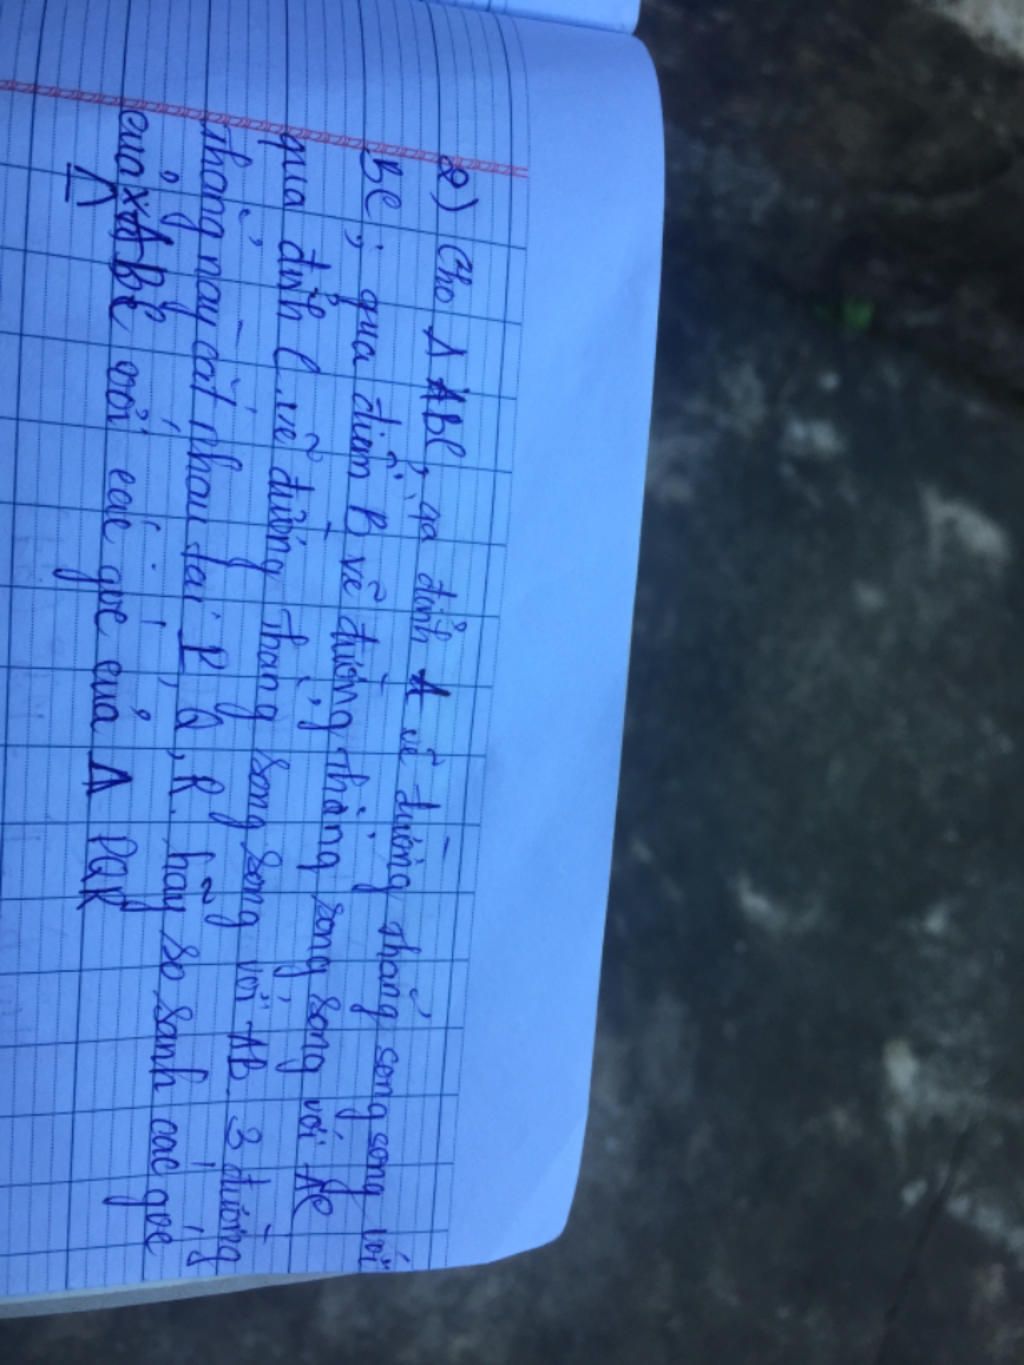 2) Cho Δ ABC, qa đỉnh A vẽ đường thẳng song song với
BC; qua điểm B vẽ đường thẳng song song với AC
qua đỉnh C vẽ đường thẳng song song với AB. 3 đường
thẳng này cắt nhau tại P, Q, R. hãy so sánh các góc
của ABC với các góc của Δ PQR
Δ